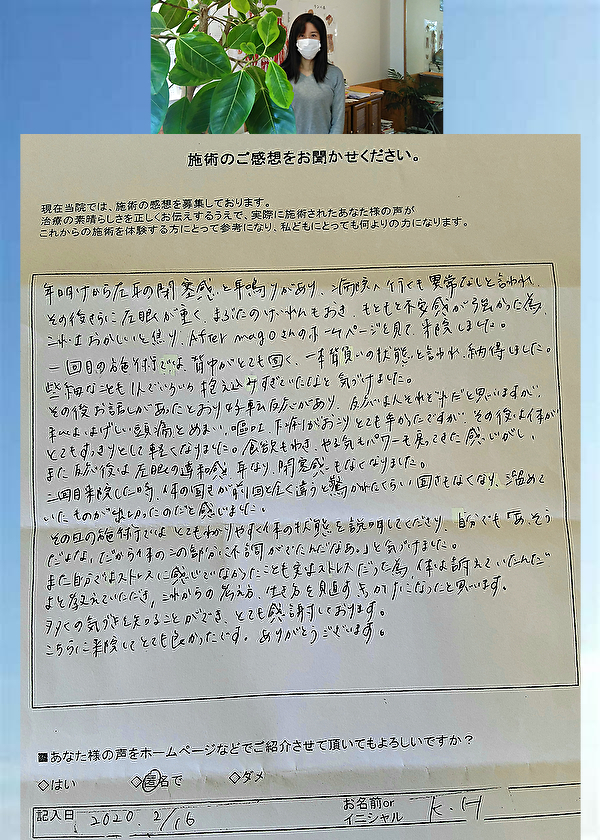 施術のご感想をお聞かせください。
現在当院では、施術の感想を募集しております。
治療の素晴らしさを正しくお伝えするうえで、実際に施術されたあなた様の声が
これからの施術を体験する方にとって参考になり、私どもにとっても何よりの力になります。
年明けから左耳の閉塞感と耳鳴りがあり、病院へ行くも異常なしと言われ、
その後さらに左眼が重く、まぶたのけいれんもおき、もともと不安感が強かった為、
これはおかしいと焦り、After magoさんのホームページを見て来院しました。
一回目の施術では、背中がとても固く、一本背負いの状態と言われ、納得しました。
些細なことも1人でいろいろ抱え込みすぎていたなと気づけました。
その後お話しがあったとおり好転反応があり、反応は人それぞれだと思いますが、
私ははげしい頭痛とめまい、嘔吐、下痢がおこりとても辛かったですが、その後は体が
とてもすっきりとして軽くなりました。食欲もわき、やる気もパワーも戻ってきた感じがし、
また反応後は左眼の違和感、耳なり、閉塞感もなくなりました。
二回目来院した時、体の固さが前回と全く違うと驚かれたくらい固さもなくなり、溜めて
いたものが出しきったのだと感じました。
その日の施術ではとてもわかりやすく体の状態を説明してくださり、自分でも「あ、そう
だよな、だから体のこの部分に不調がでたんだなあ。」と気づけました。
また自分ではストレスに感じていなかったことも実はストレスだった為、体は訴えていたんだ
よと教えていただき、これからの考え方、生き方を見直すきっかけになったと思います。
多くの気づきを知ることができ、とても感謝しております。
こちらに来院してとても良かったです。ありがとうございます。
■あなた様の声をホームページなどでご紹介させて頂いてもよろしいですか？
◇はい ◇匿名で ◇ダメ
記入日 2020. 2/16 お名前or
イニシャル K.H